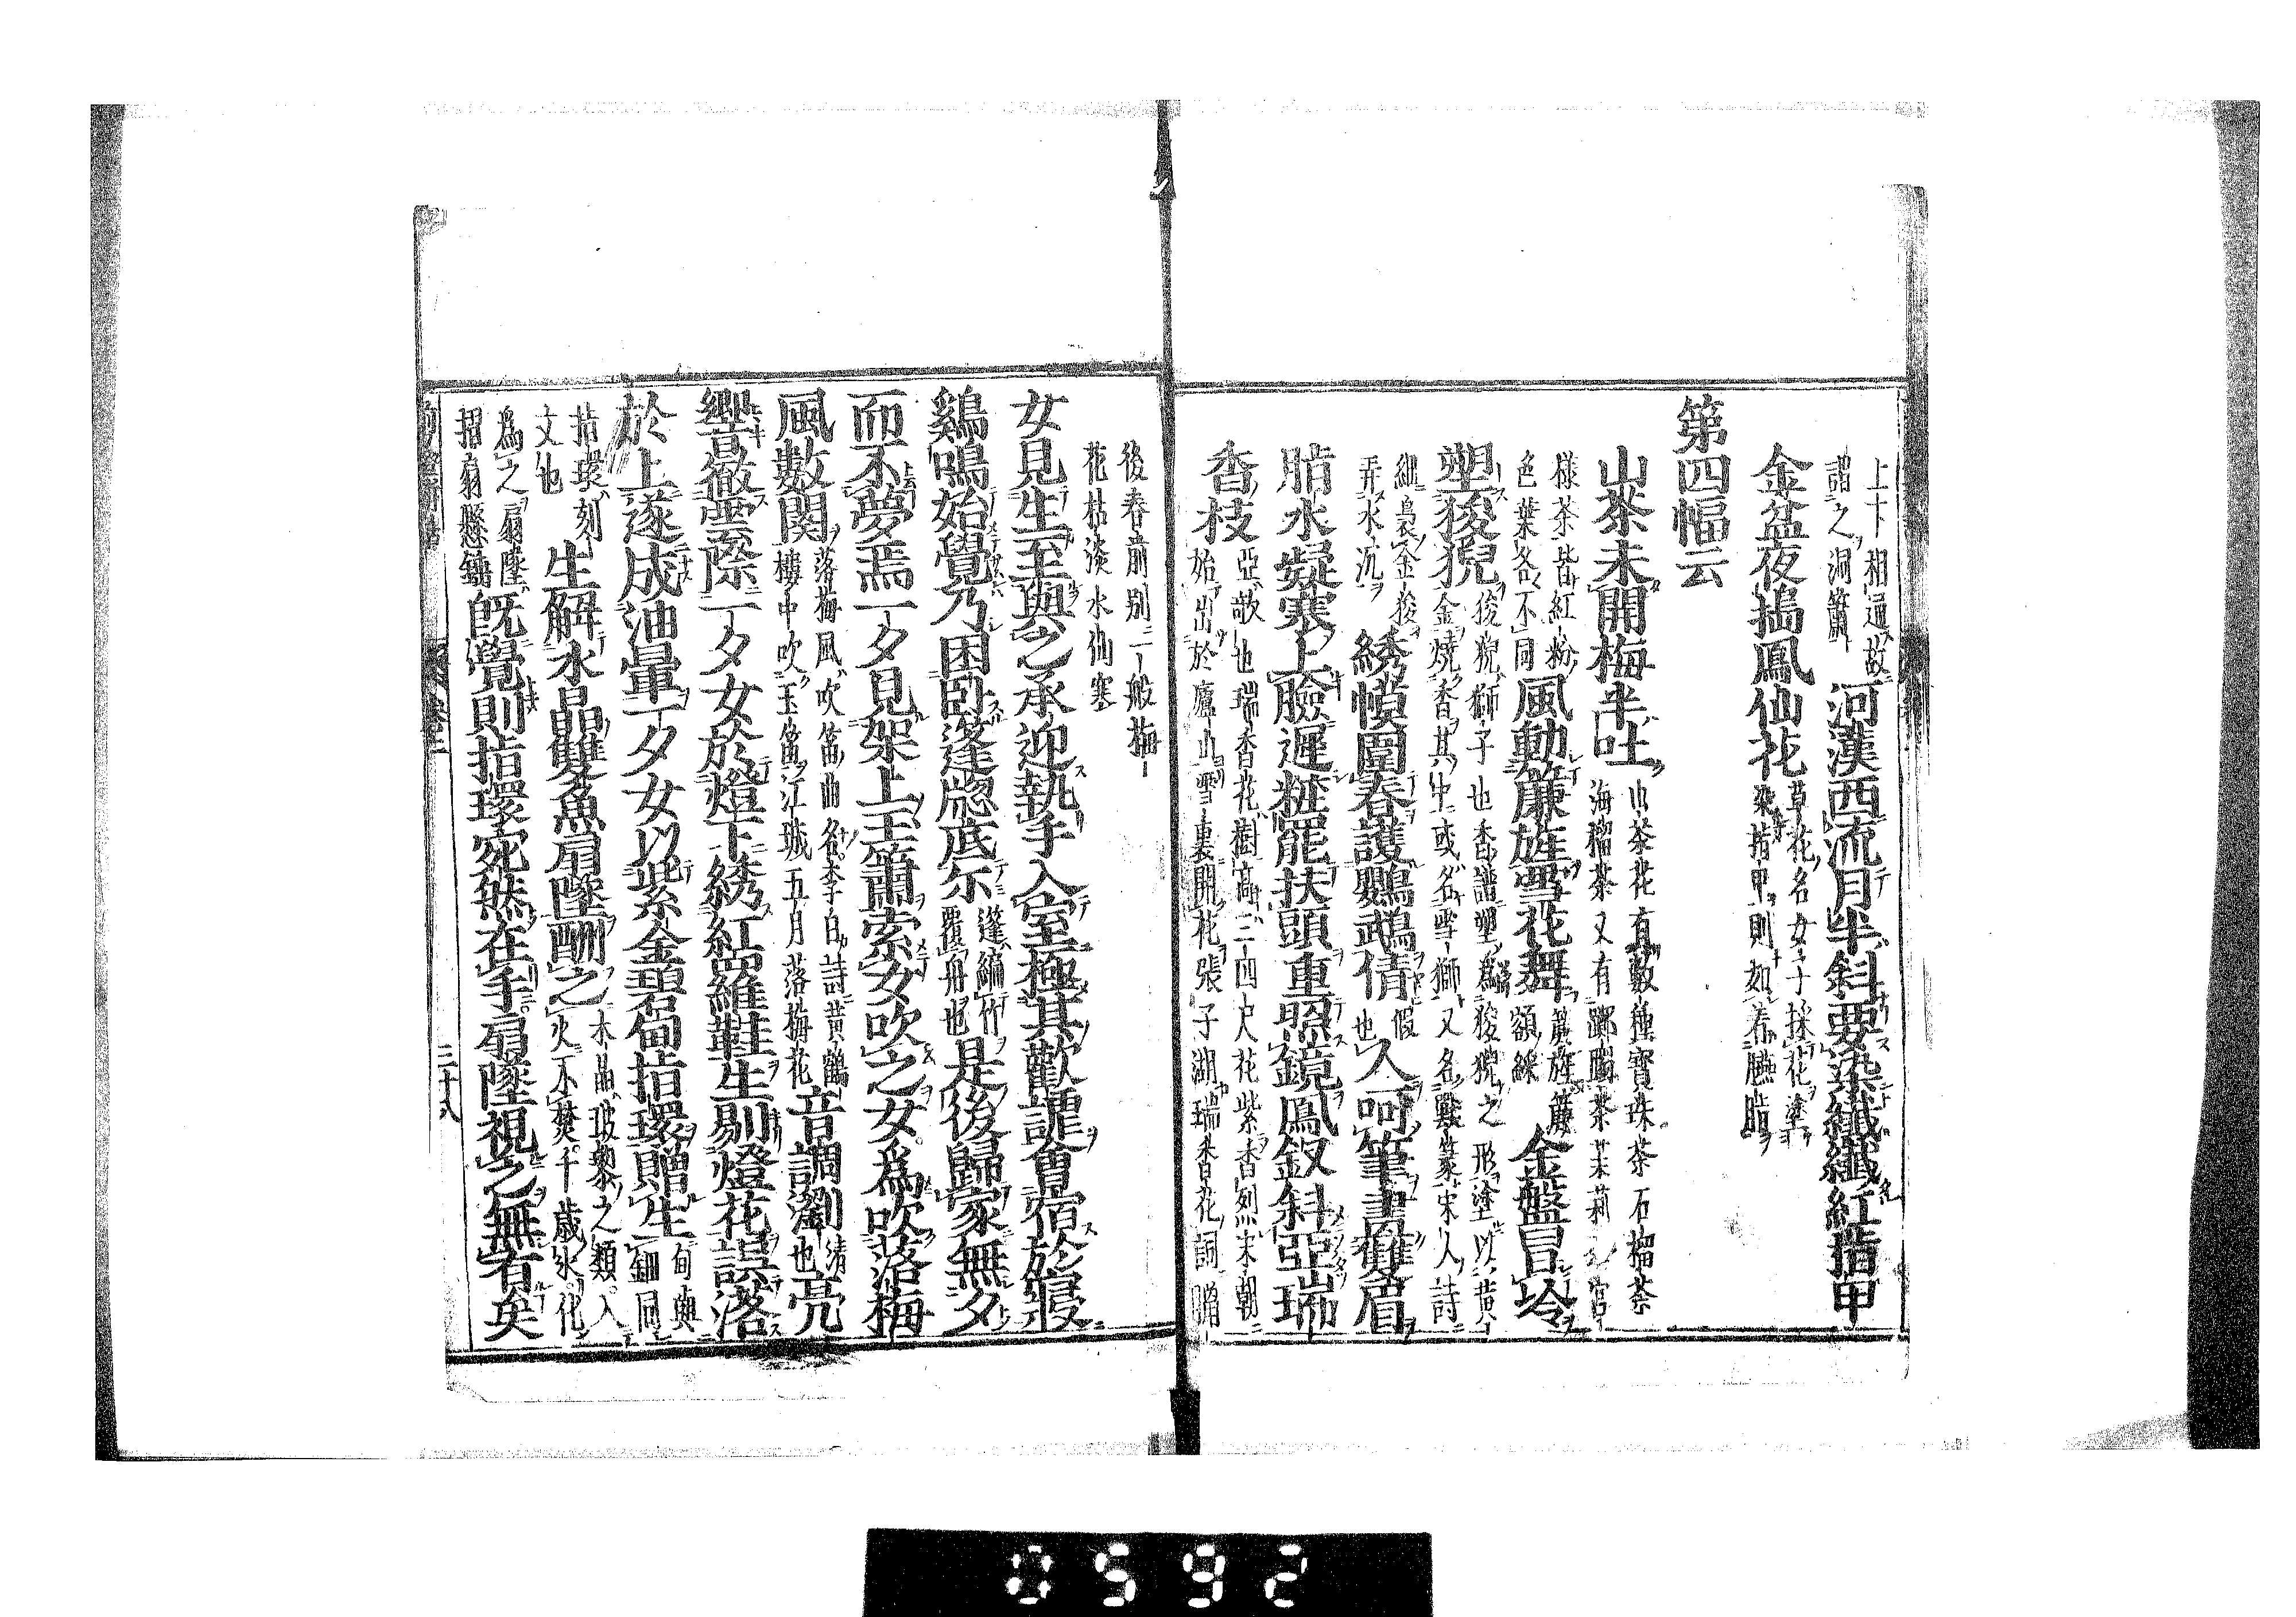 上下相通故
謂之洞簫
河漢西流月半斜要染纖纖紅指甲
金盆夜搗鳳仙花
草花名女子採花塗
染指甲則如春臙脂
第四幅云
山茶未開梅半吐
山茶花有數種寶珠茶石榴茶
海榴茶又有躑躅茶茉莉茶宮
樣茶皆紅粉
色葉各不同
風動簾旌雪花舞
簾旌簾
額綵
金盤冒冷
塑狻猊
狻猊獅子也香譜塑為狻猊之形塗以黃
金燒香其中或名雪獅又名戰篆宋人詩
細裊金狻
弄水沉
綉幙圍春護鸚鵡倩
假
也
人呵筆畫雙眉
脂水凝寒上臉遲粧罷扶頭重照鏡鳳釵斜亞瑞
香枝
亞敧也瑞香花樹高三四尺花紫香烈宋朝
始出於廬山雪裏開花張子湖瑞香花詞臘
後春前別一般梅
花枯淡水仙寒
女見生至與之承迎執手入室極其歡謔會宿於寢
鷄鳴始覺乃困臥篷牕底尓
篷編竹
覆舟也
是後歸家無夕
而不夢焉一夕見架上玉簫索女吹之女為吹落梅
風數闋
落梅風吹笛曲名李白詩黃鶴
樓中吹玉笛江城五月落梅花
音調瀏
清
也
亮
響徹雲際一夕女於燈下綉紅羅鞋生剔燈花誤落
於上遂成油暈一夕女以紫金碧甸指環贈生
甸與
鈿同
指環刻
文也
生解水晶雙魚扇墜酬之
水晶玻瓈之類入
火不焚千歲氷化
為之扇墜
摺扇懸錘
旣覺則指環宛然在手扇墜視之無有矣
三十八
0592